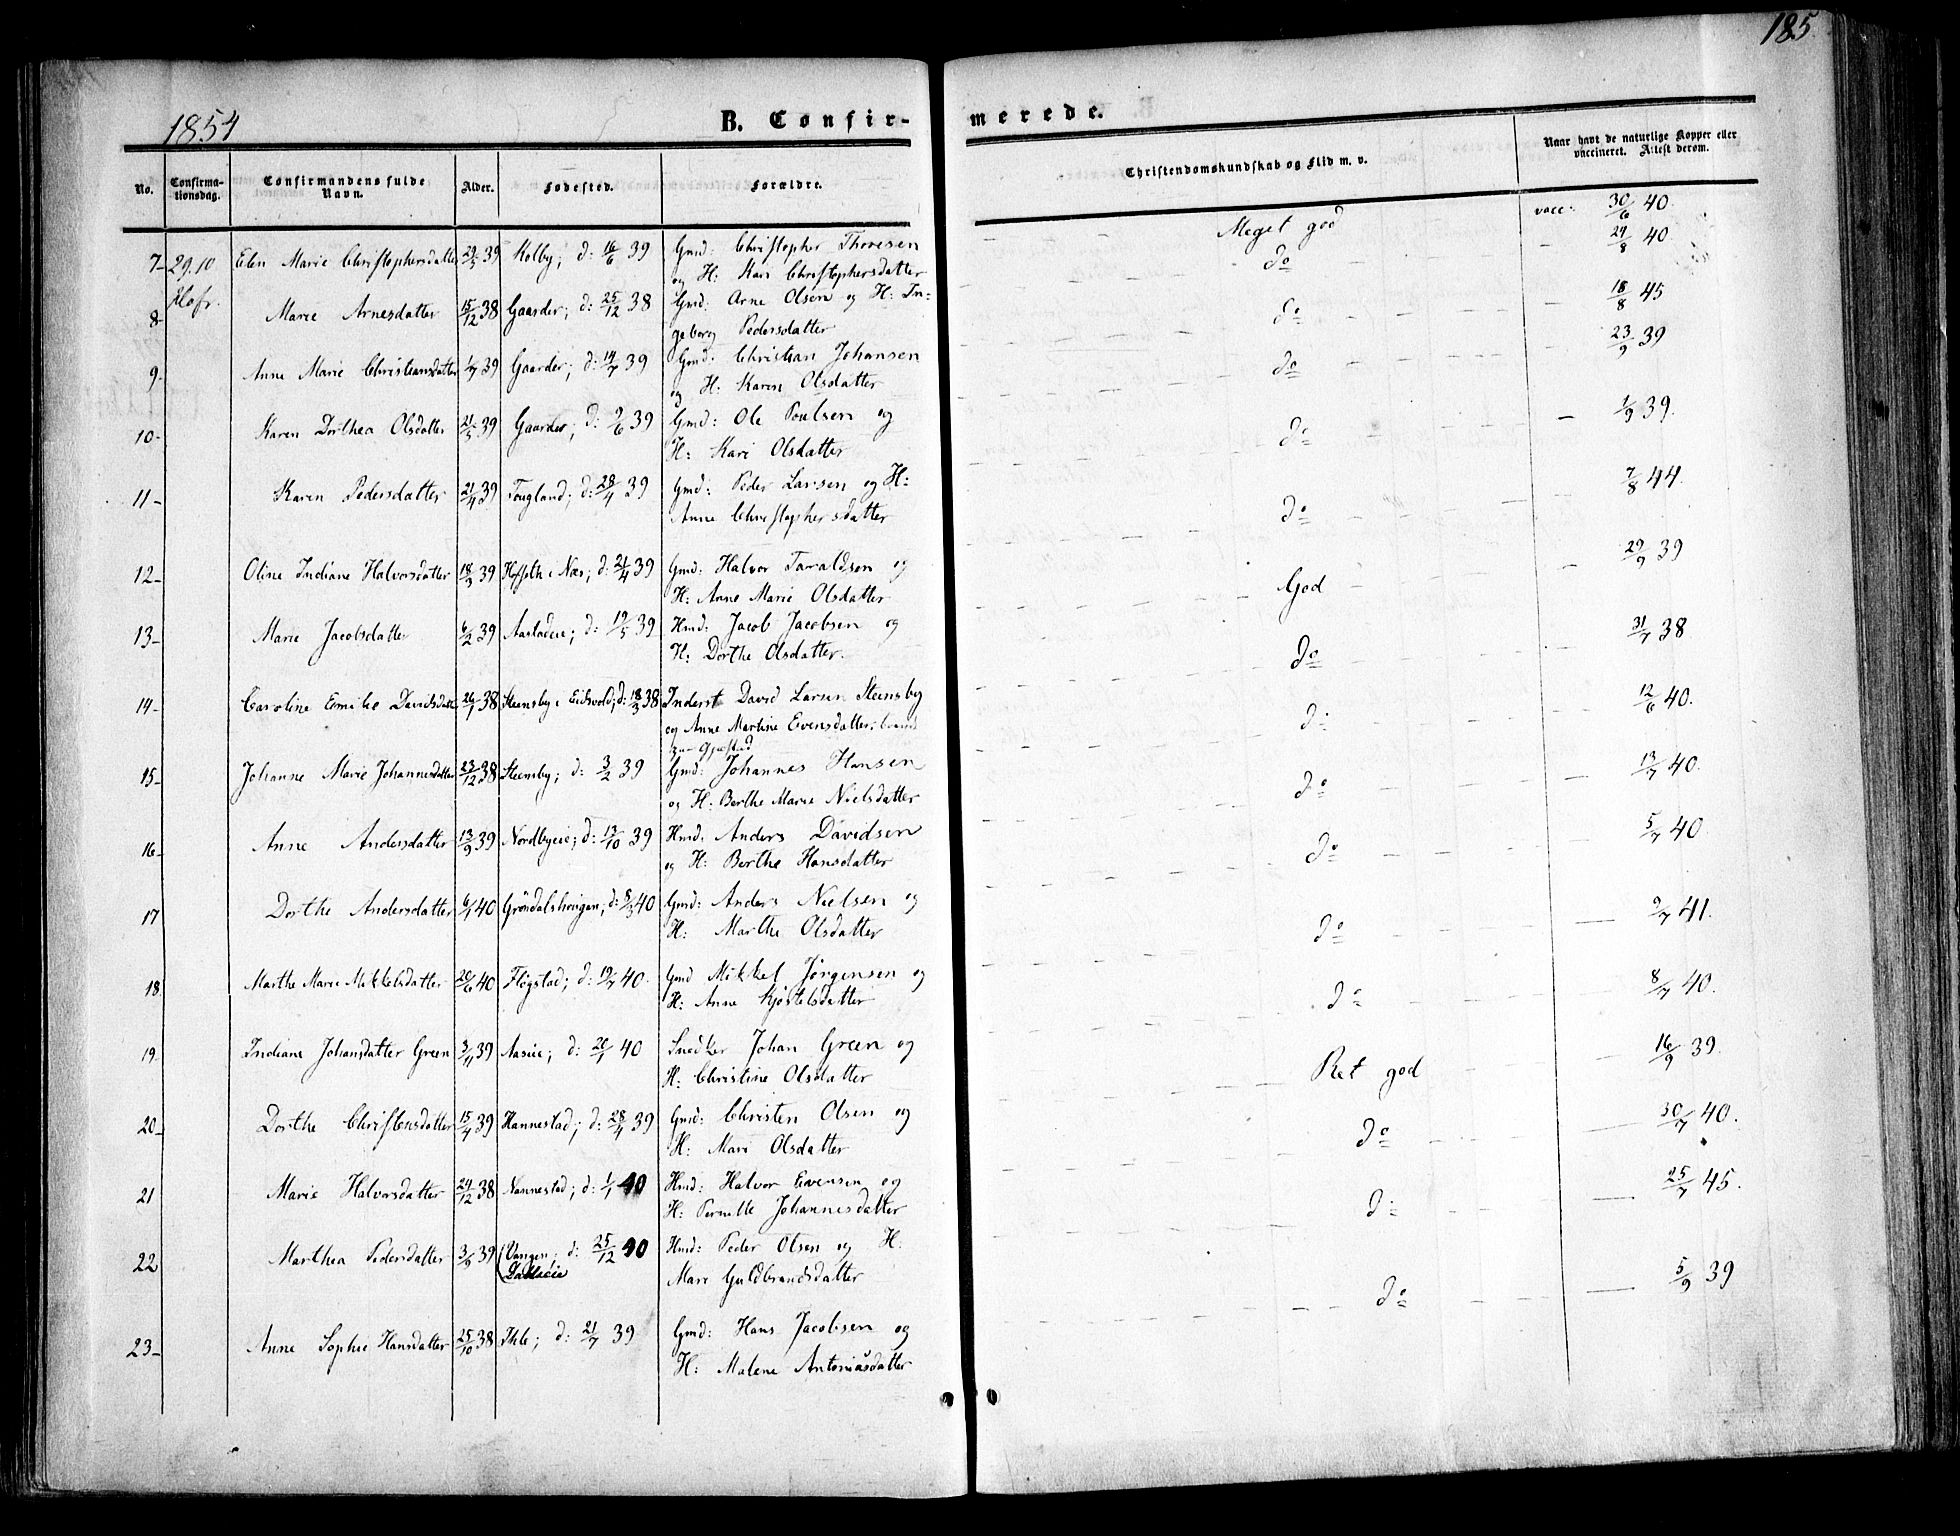 185
1854
B. Confir-
merede.
No.
Confirma-
tionsdag.
Confirmandens fulde
Navn.
Alder.
Fødested.
Forældre.
Christendomskundskab og Flid m. v.
Naar havt de naturlige Kopper eller
vaccineret. Attest derom.
7- 29.10 Elen Marie Christophersdatter 29/5 39 Kolby; d: 16/6 39 Gmd: Christopher Thoresen
og H: Kari Christophersdatter
Meget god vacc: 30/6 40
8- Marie Arnesdatter 15/12 38 Gaarder; d: 25/12 38 Gmd: Arne Olsen og H: In-
geborg Pedersdatter
do 29/8 40
9. Anne Marie Christiansdatter 1/7 39 Gaarder; d: 14/7 39 Gmd: Christian Johansen
og H: Karen Olsdatter
do 18/8 45
10- Karen Dorthea Olsdatter 21/5 39 Gaarder; d: 9/6 39 Gmd: Ole Poulsen og
H: Kari Olsdatter
do 23/9 39
11- Karen Pedersdatter 21/4 39 Fougland; d: 28/4 39 Gmd: Peder Larsen og H:
Anne Christophersdatter
do 1/9 39.
12- Oline Indiane Halvorsdatter 18/3 39 i Næs; d: 21/4 39 Gmd: Halvor Taraldsen og
H: Anne Marie Olsdatter
do 7/8 44.
13- Marie Jacobsdatter 6/2 39 d: 19/5 39 Hmd: Jacob Jacobsen og
H: Dorthe Olsdatter.
God 29/9 39
14- Caroline Emilie Davidsdatter 26/1 38 Steensby i Eidsvold; d: 18/3 38 Inderst David Larsen Steensby
og Anne Martine Evensdatter,
do 31/7 38
15- Johanne Marie Johannesdatter 23/12 38 Steensby; d: 3/2 39 Gmd: Johannes Hansen
og H: Berthe Marie Nielsdatter
do 12/6 40.
16- Anne Andersdatter 13/9 39 Nordbyeie; d: 13/10 39 Hmd: Anders Davidsen
og H: Berthe Hansdatter
do 13/7 40.
17 Dorthe Andersdatter 6/1 40 Grøndalshougen; d: 8/3 40 Gmd: Anders Nielsen og
H: Marthe Olsdatter
do 5/7 40
18 Marthe Marie Mikkelsdatter 20/6 40 Fløgstad; d: 19/7 40. Gmd Mikkel Jørgensen og
H: Anne Kjøstelsdatter
do 9/7 41.
19. Indiane Johansdatter Green 3/11 39 Aaseie; d: 20/1 40 Snedker Johan Green og
H: Christine Olsdatter
do 8/7 40.
20- Dorthe Christensdatter 15/4 39 Hannestad; d: 28/4 39 Gmd: Christen Olsen og
H: Mari Olsdatter
Ret god 16/9 39.
21 Marie Halvorsdatter 24/12 38 Nannestad; d: 1/1 40 Hmd: Halvor Evensen og
H: Pernelle Johannesdatter
do 30/7 40.
22 Marthea Pedersdatter 3/9 39 Vangen; d: 25/12 40 Hmd: Peder Olsen og H:
Mari Guldbrandsdatter
do 25/7 45.
23- Anne Sophie Hansdatter 25/10 38 Ihle; d: 21/7 39 Gmd: Hans Jacobsen og
H: Malene Antoniasdatter
do 5/9 39